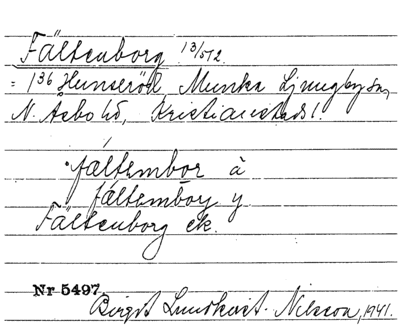 Fältenborg 13/572
= 1³⁶ Hunseröd Munka Ljungby sn,
N. Åsbo hd, Kristianstads l.
fältembor à
fältembory y
Fältenborg ek.
Nr 5497
Birgit Lundkvist-Nilsson, 1941.